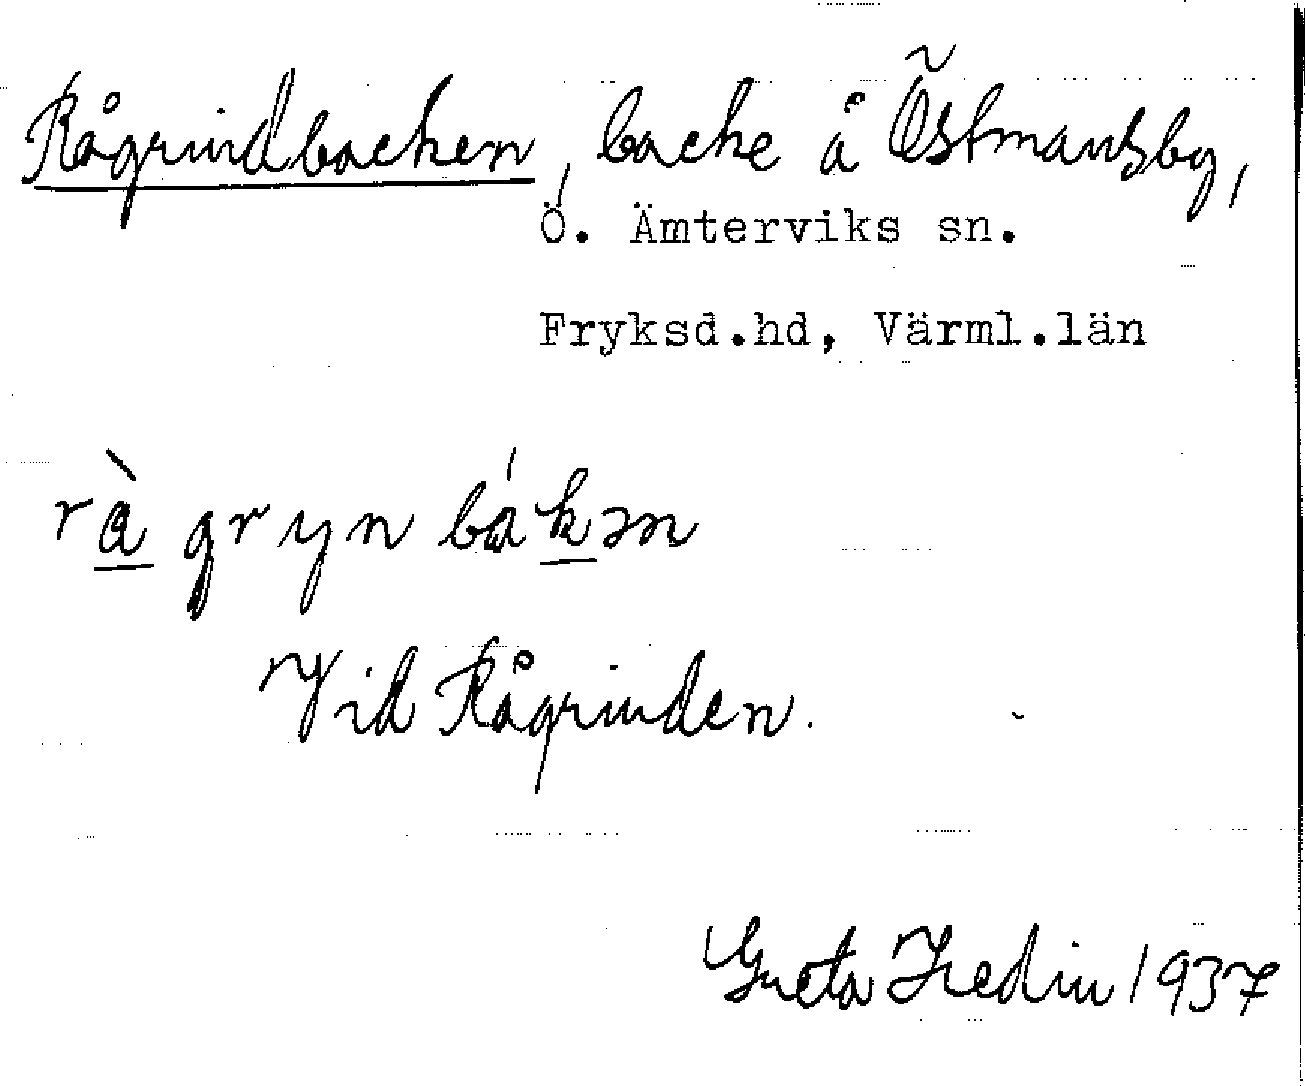 Rågrindbacken, backe å Östmansby,
Ö. Ämterviks sn.
Fryksd.hd, Värml.län
rà gryn bákən
Vid Rågrinden.
Greta Hedin 1937